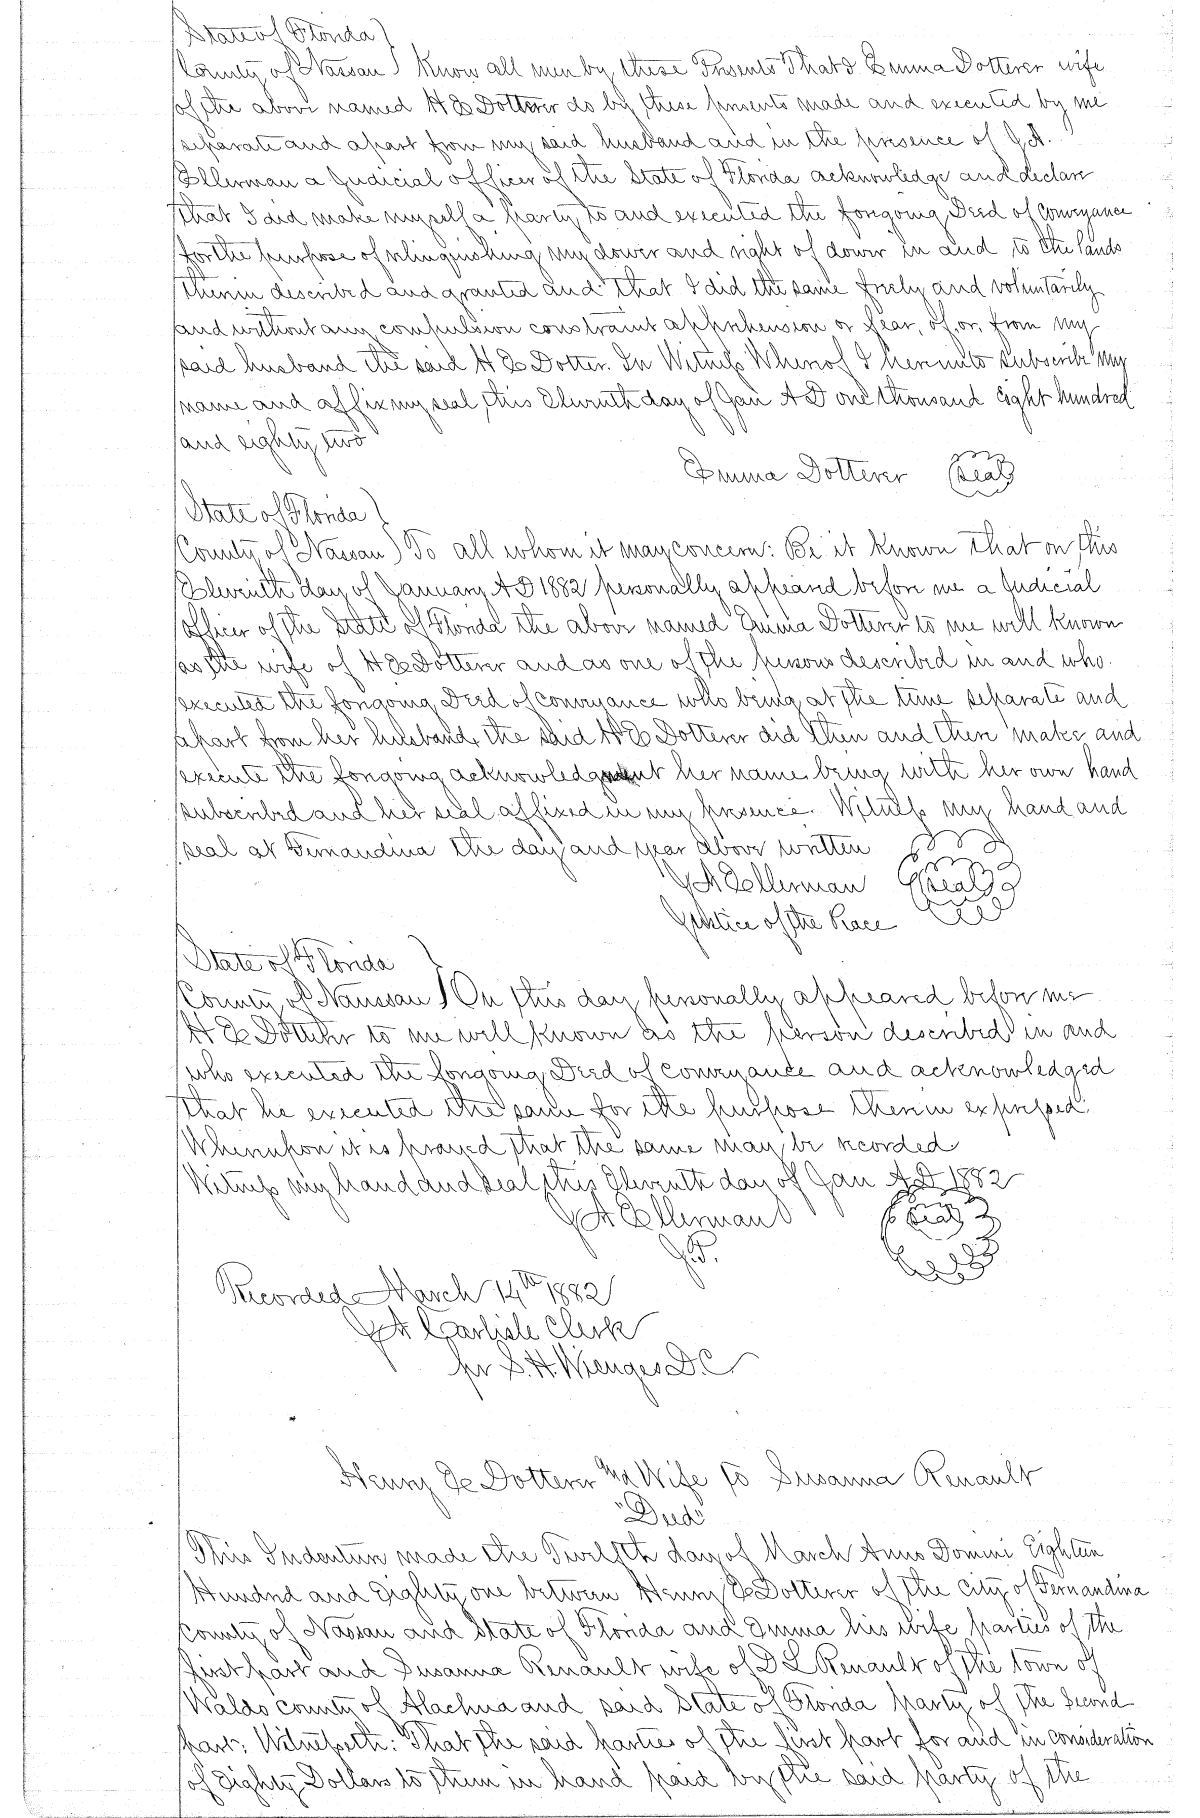 State of Florida }
County of Nassau } Know all men by these Presents That I Emma Dotterer wife
of the above named H E Dotterer do by these presents made and executed by me
separate and apart from my said husband and in the presence of J A.
Ellerman a Judicial officer of the State of Florida acknowledge and declare
that I did make myself a party to and executed the foregoing Deed of conveyance
for the purpose of relinquishing my dower and right of dower in and to the lands
therein described and granted and that I did the same freely and voluntarily
and without any compulsion constraint apprehension or fear, of, or, from my
said husband the said H E Dotter. In Witness Whereof I hereunto subscribe my
name and affix my seal this Eleventh day of Jan A D one thousand eight hundred
and eighty two
Emma Dotterer (seal)
State of Florida }
County of Nassau } To all whom it may concern: Be it known that on this
Eleventh day of January A D 1882 personally appeared before me a Judicial
officer of the State of Florida the above named Emma Dotterer to me well known
as the wife of H E Dotterer and as one of the persons described in and who
executed the foregoing Deed of conveyance who being at the time separate and
apart from her husband, the said H E Dotterer did then and there make and
execute the foregoing acknowledgment her name being with her own hand
subscribed and her seal affixed in my presence. Witness my hand and
seal at Fernandina the day and year above written
J A Ellerman (seal)
Justice of the Peace
State of Florida }
County of Naussau } On this day personally appeared before me
H E Dotterer to me well known as the person described in and
who executed the foregoing Deed of conveyance and acknowledged
that he executed the same for the purpose therein expressed.
Whereupon it is prayed that the same may be recorded
Witness my hand and seal this Eleventh day of Jan A D 1882
J A Ellerman (seal)
J.P.
Recorded March 14th 1882
J A Carlisle Clerk
pr S. H. Wienges D.C
Henry E Dotterer and Wife to Susanna Renault
"Deed"
This Indenture made the Twelfth day of March Anno Domini Eighteen
Hundred and Eighty one between Henry E Dotterer of the city of Fernandina
county of Nassau and State of Florida and Emma his wife parties of the
first part and Susanna Renault wife of D L Renault of the town of
Waldo county of Alachua and said State of Florida party of the second
part; Witnesseth: That the said parties of the first part for and in consideration
of Eighty Dollars to them in hand paid by the said party of the